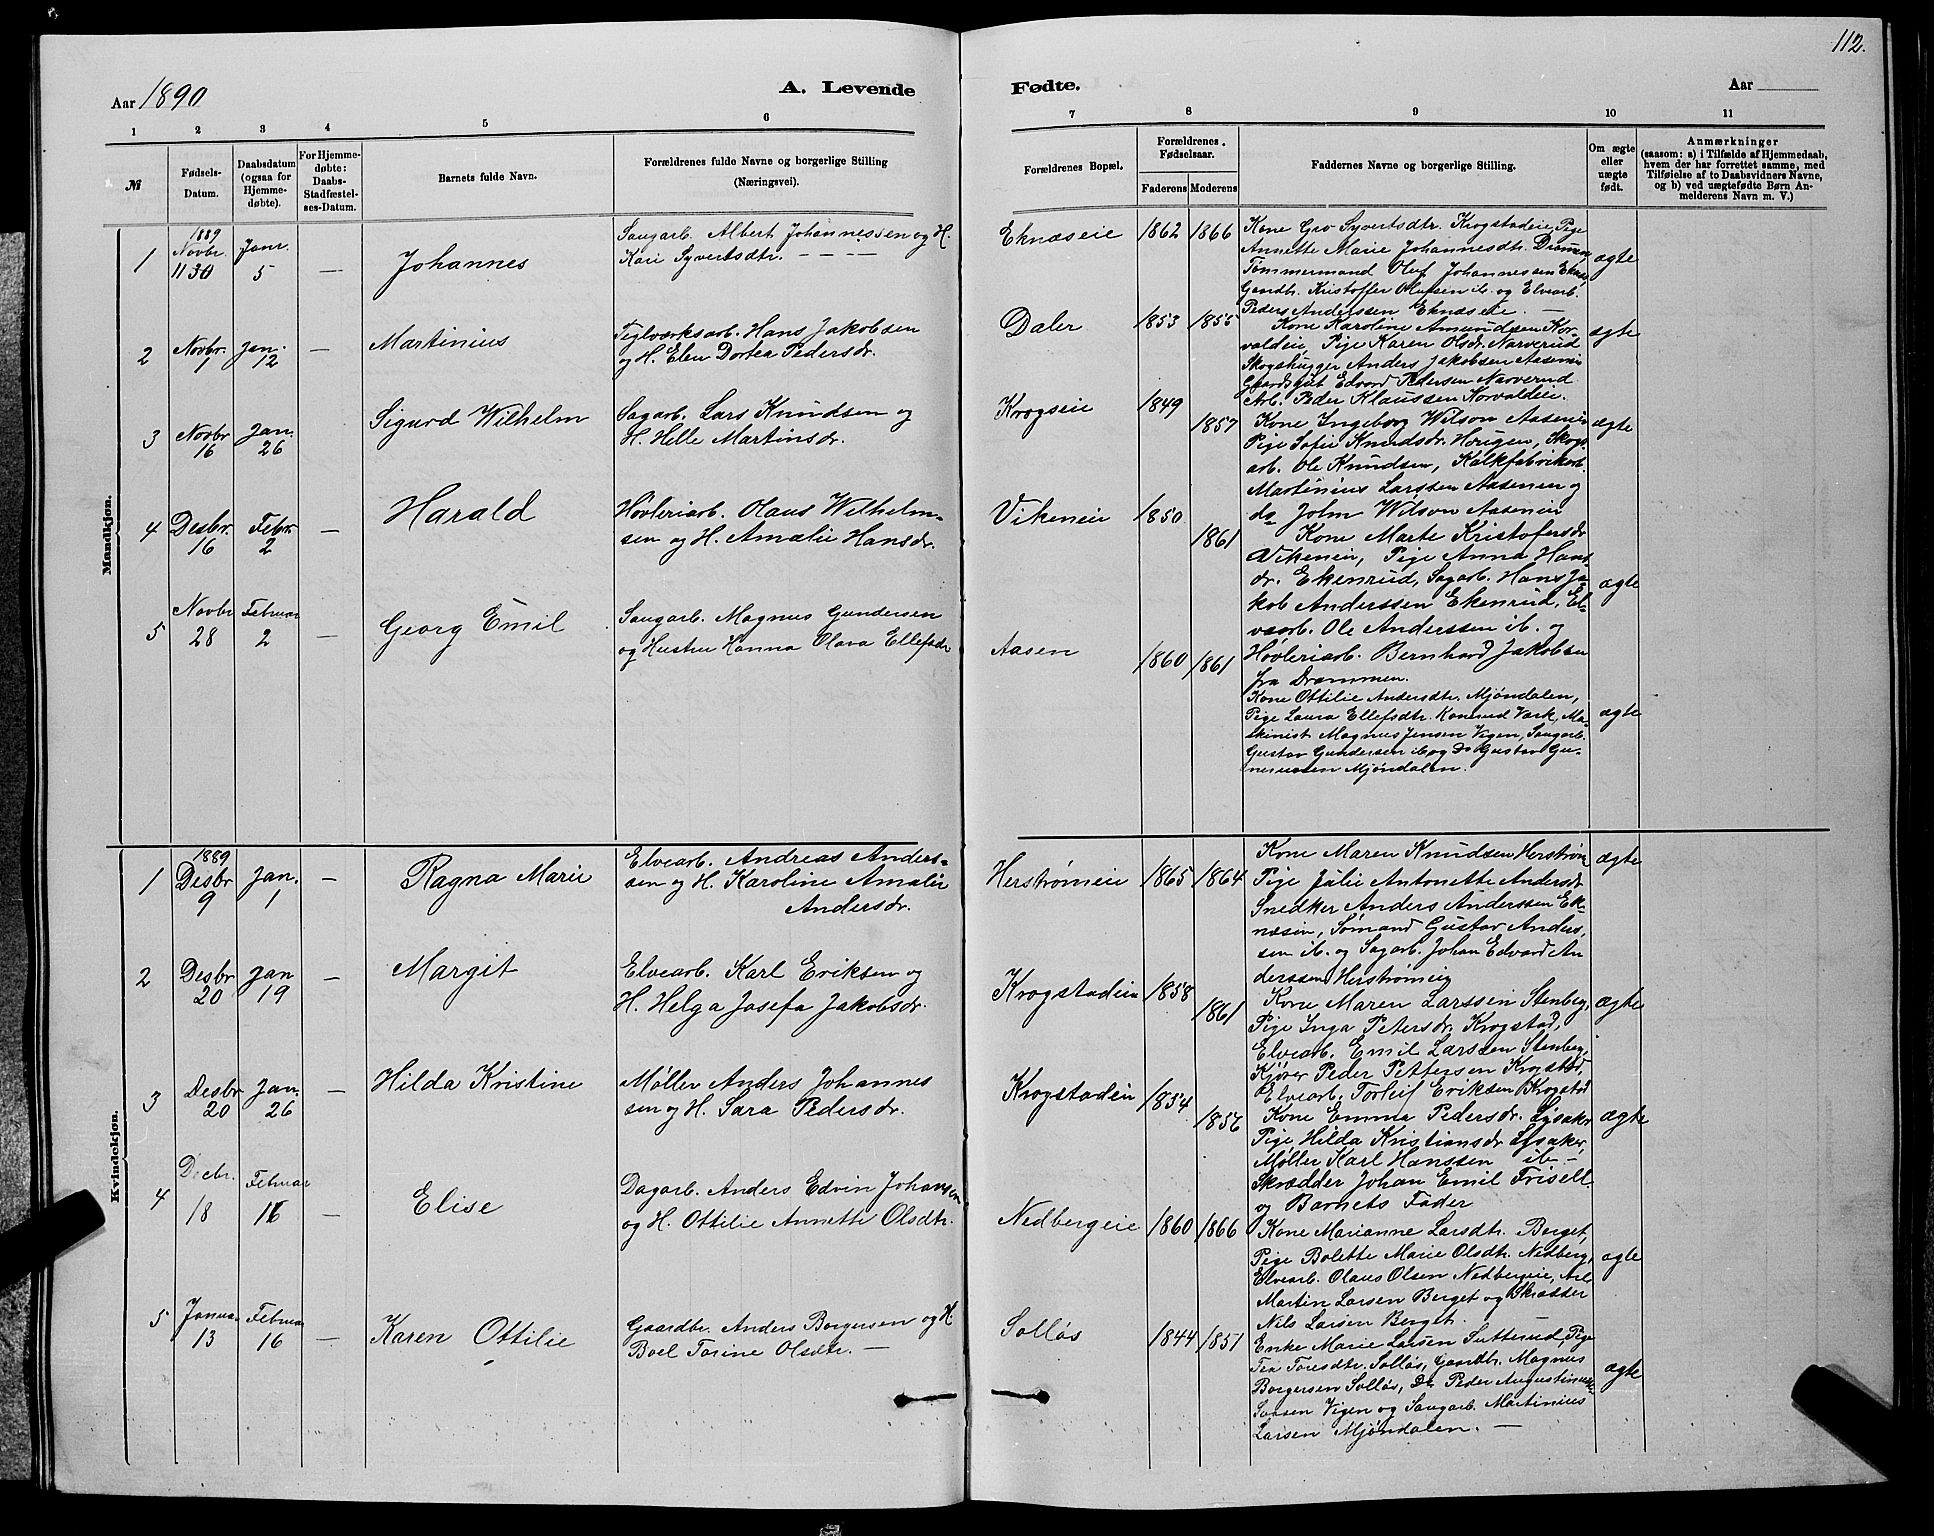 112.
Aar 1890
A. Levende
Fødte.
Aar
1 2 3 4 5 6 7 8 9 10 11
№
Fødsels-Datum.
Daabsdatum (ogsaa for Hjemme-døbte).
For Hjemme-døbte: Daabs-Stadfæstel-ses-Datum.
Barnets fulde Navn.
Forældrenes fulde Navne og borgerlige Stilling
(Næringsvei).
Forældrenes Bopæl.
Forældrenes Fødselsaar.
Faderens Moderens
Faddernes Navne og borgerlige Stilling.
Om ægte eller uægte født.
Anmærkninger
(saasom: a) i Tilfælde af Hjemmedaab,
hvem der har forrettet samme, med
Tilføielse af to Daabsvidners Navne,
og b) ved uægtefødte Børn An-
melderens Navn m. V.)
Mandkjøn.
1 1889 Novbr. 11 30 Janr. 5 — Johannes
Saugarb. Albert Johannessen og H.
Kari Syvertsdtr. — — — —
Eknæseie 1862 1866
Kone Gro Syvertsdtr. Krogstadeie, Pige
Annette Marie Johannesdtr. Drammen,
Tømmermand Oluf Johannessen Eknæs,
Gaardbr. Kristoffer Olufsen ib. og Elvearb.
Peder Anderssen Eknæseie. —
ægte
2 Novbr. 1 Jan. 12 — Martinius
Teglværksarb. Hans Jakobsen
og H. Elen Dortea Pedersdr.
Daler 1853 1855
Kone Karoline Amundsen Kor-
valdeie, Pige Karen Olsdr. Narverud
Skogshugger Anders Jakobsen Aasenie
Gaardsgut Edvard Pedersen Narverud
Arb. Peder Klaussen Korvaldeie.
ægte
3 Novbr 16 Jan. 26 Sigurd Wilhelm
Sagarb. Lars Knudsen og
H. Helle Martinsdr.
Krogseie 1849 1857
Kone Ingeborg Wilson Aasenie
Pige Sofie Knudsdr. Haugen, Skogs-
arb. Ole Knudsen, Kalkfabrikarb.
Martinius Larssen Aasenen og
do John Wilson Aasenie
ægte
4 Desbr. 16 Febr. 2 — Harald
Høvleriarb. Olaus Wilhelm-
sen og H. Amalie Hansdr.
Vikeneie 1850 1861
Kone Marte Kristofersdr
Vikenein, Pige Anna Hans
dr. Ekenrud, Sagarb. Hans Ja-
kob Anderssen Ekenrud, El-
vearb. Ole Anderssen ib. og
Høvleriarb. Bernhard Jakobsen
fra Drammen.
ægte
5 Novbr 28 Februar 2 — Georg Emil
Saugarb. Magnus Gundersen
og Hustru Hanna Olava Ellefsdr
Aasen 1860 1861
Kone Ottilie Andersdtr. Mjøndalen,
Pige Laura Ellefsdtr. Konnerud Værk, Ma-
skinist Magnus Jensen Vigen, Saugarb.
Gustav Gundersen ib og Do Gustav Gu-
Mjøndalen.
ægte
Kvindekjøn.
1 1889 Desbr 9 Jan. 1 — Ragna Marie
Elvearb. Andreas Anders-
sen og H. Karoline Amalie
Andersdr.
Herstrømeie 1865 1864
Kone Maren Knudsen Herstrøm
Pige Julie Antonette Andersdr
Snedker Anders Anderssen Ek-
næsein, Sømand Gustav Anders-
sen ib. og Sagarb. Johan Edvard An
derssen Herstrømeig
ægte
2 Desbr 20 Jan 19 — Margit
Elvearb. Karl Eriksen og
H. Helga Josefa Jakobsdr.
Krogstadein 1858 1861
Kone Maren Larssen Stenberg,
Pige Inga Petersdr. Krogstad,
Elvearb. Emil Larssen Stenberg,
Kjører Peder Pettersen Krogstad,
Elvearb. Torleif Eriksen Krogstad
ægte
3 Desbr 20 Jan. 26 — Hilda Kristine
Møller Anders Johannes
sen og H. Sara Pedersdr.
Krogstadein 1854 1856
Kone Emma Pedersdr. Lysaker
Pige Hilda Kristiansdr Lysaker,
Møller Karl Hanssen ib —
Skrædder Johan Emil Frisell
og Barnets Fader
ægte
4 Decbr. 18 Februar 16 — Elise
Dagarb. Anders Edvin Johansen
og H. Ottilie Annette Olsdtr.
Nedbergeie 1860 1866
Kone Marianne Larsdtr. Berget,
Pige Bolette Marie Olsdtr. Nedberg,
Elvearb. Olaus Olsen Nedbergeie, Arb
Martin Larsen Berget og Skrædder
Nils Larsen Berget.
ægte
5 Januar 13 Februar 16 — Karen Ottilie
Gaardbr. Anders Borgersen og H
Boel Torine Olsdtr. —
Solløs 1844 1851
Enke Marie Larsen Sutterud, Pige
Tea Toresdtr. Solløs, Gaardbr. Magnus
Borgersen Solløs, Do Peder Augustinus
Vigen og Saugarb. Martinius
Larsen Mjøndalen. —
ægte